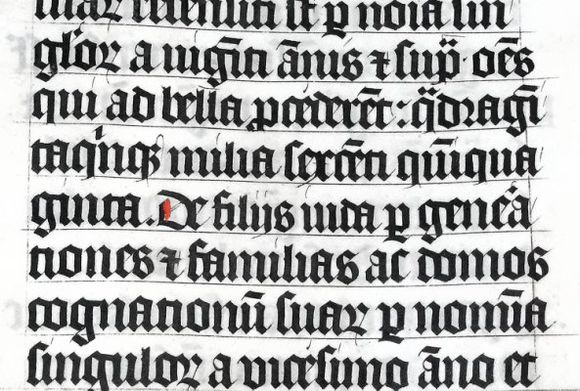 suar recensiti st̄ p noīa sin
gl'oꝝ a uigīti ān̄is ⁊ sup̄· oēs
qui ad bella ꝓcēderēt: q̄dragī
taqn̄qꝫ milia sexcēti qūiqua
ginta. De filijs iuda p geneā
tiones ⁊ familias ac domos
cognationū suaꝝ p nomīa
singuloꝝ a vicesimo āno et